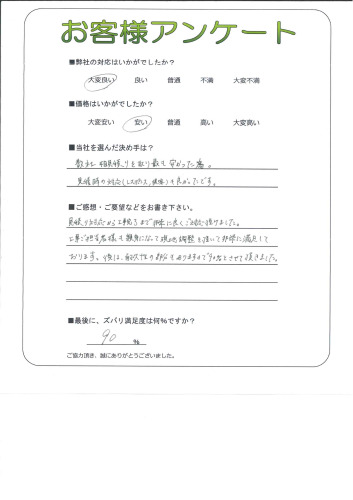 お客様アンケート
■弊社の対応はいかがでしたか?
大変良い 良い 普通 不満 大変不満
■価格はいかがでしたか?
大変安い 安い 普通 高い 大変高い
■当社を選んだ決め手は?
数社相見積りを取り最も安かった事。
見積時の対応(レスポンス、)も良かったです。
■ご感想・ご要望などをお書き下さい。
見積り対応から工事完了まで非常に良くご対応頂けました。
工事ご担当者様も親身になって現地調整を頂いて非常に満足して
おります。後は、耐久性の部分も有りますので90点とさせて頂きました。
■最後に、ズバリ満足度は何%ですか?
90 %
ご協力頂き、誠にありがとうございました。